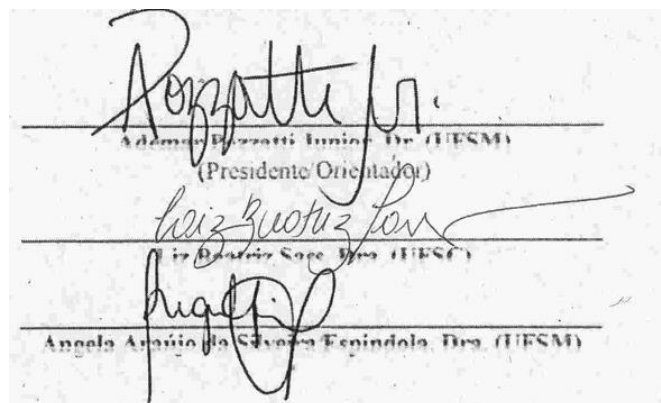 Pozzatti Jr.
Ademar Pozzatti Junior, Dr. (UFSM)
(Presidente/Orientador)
Liz Beatriz Sass, Dra. (UFSC)
Angela Araújo da Silveira Espindola, Dra. (UFSM)